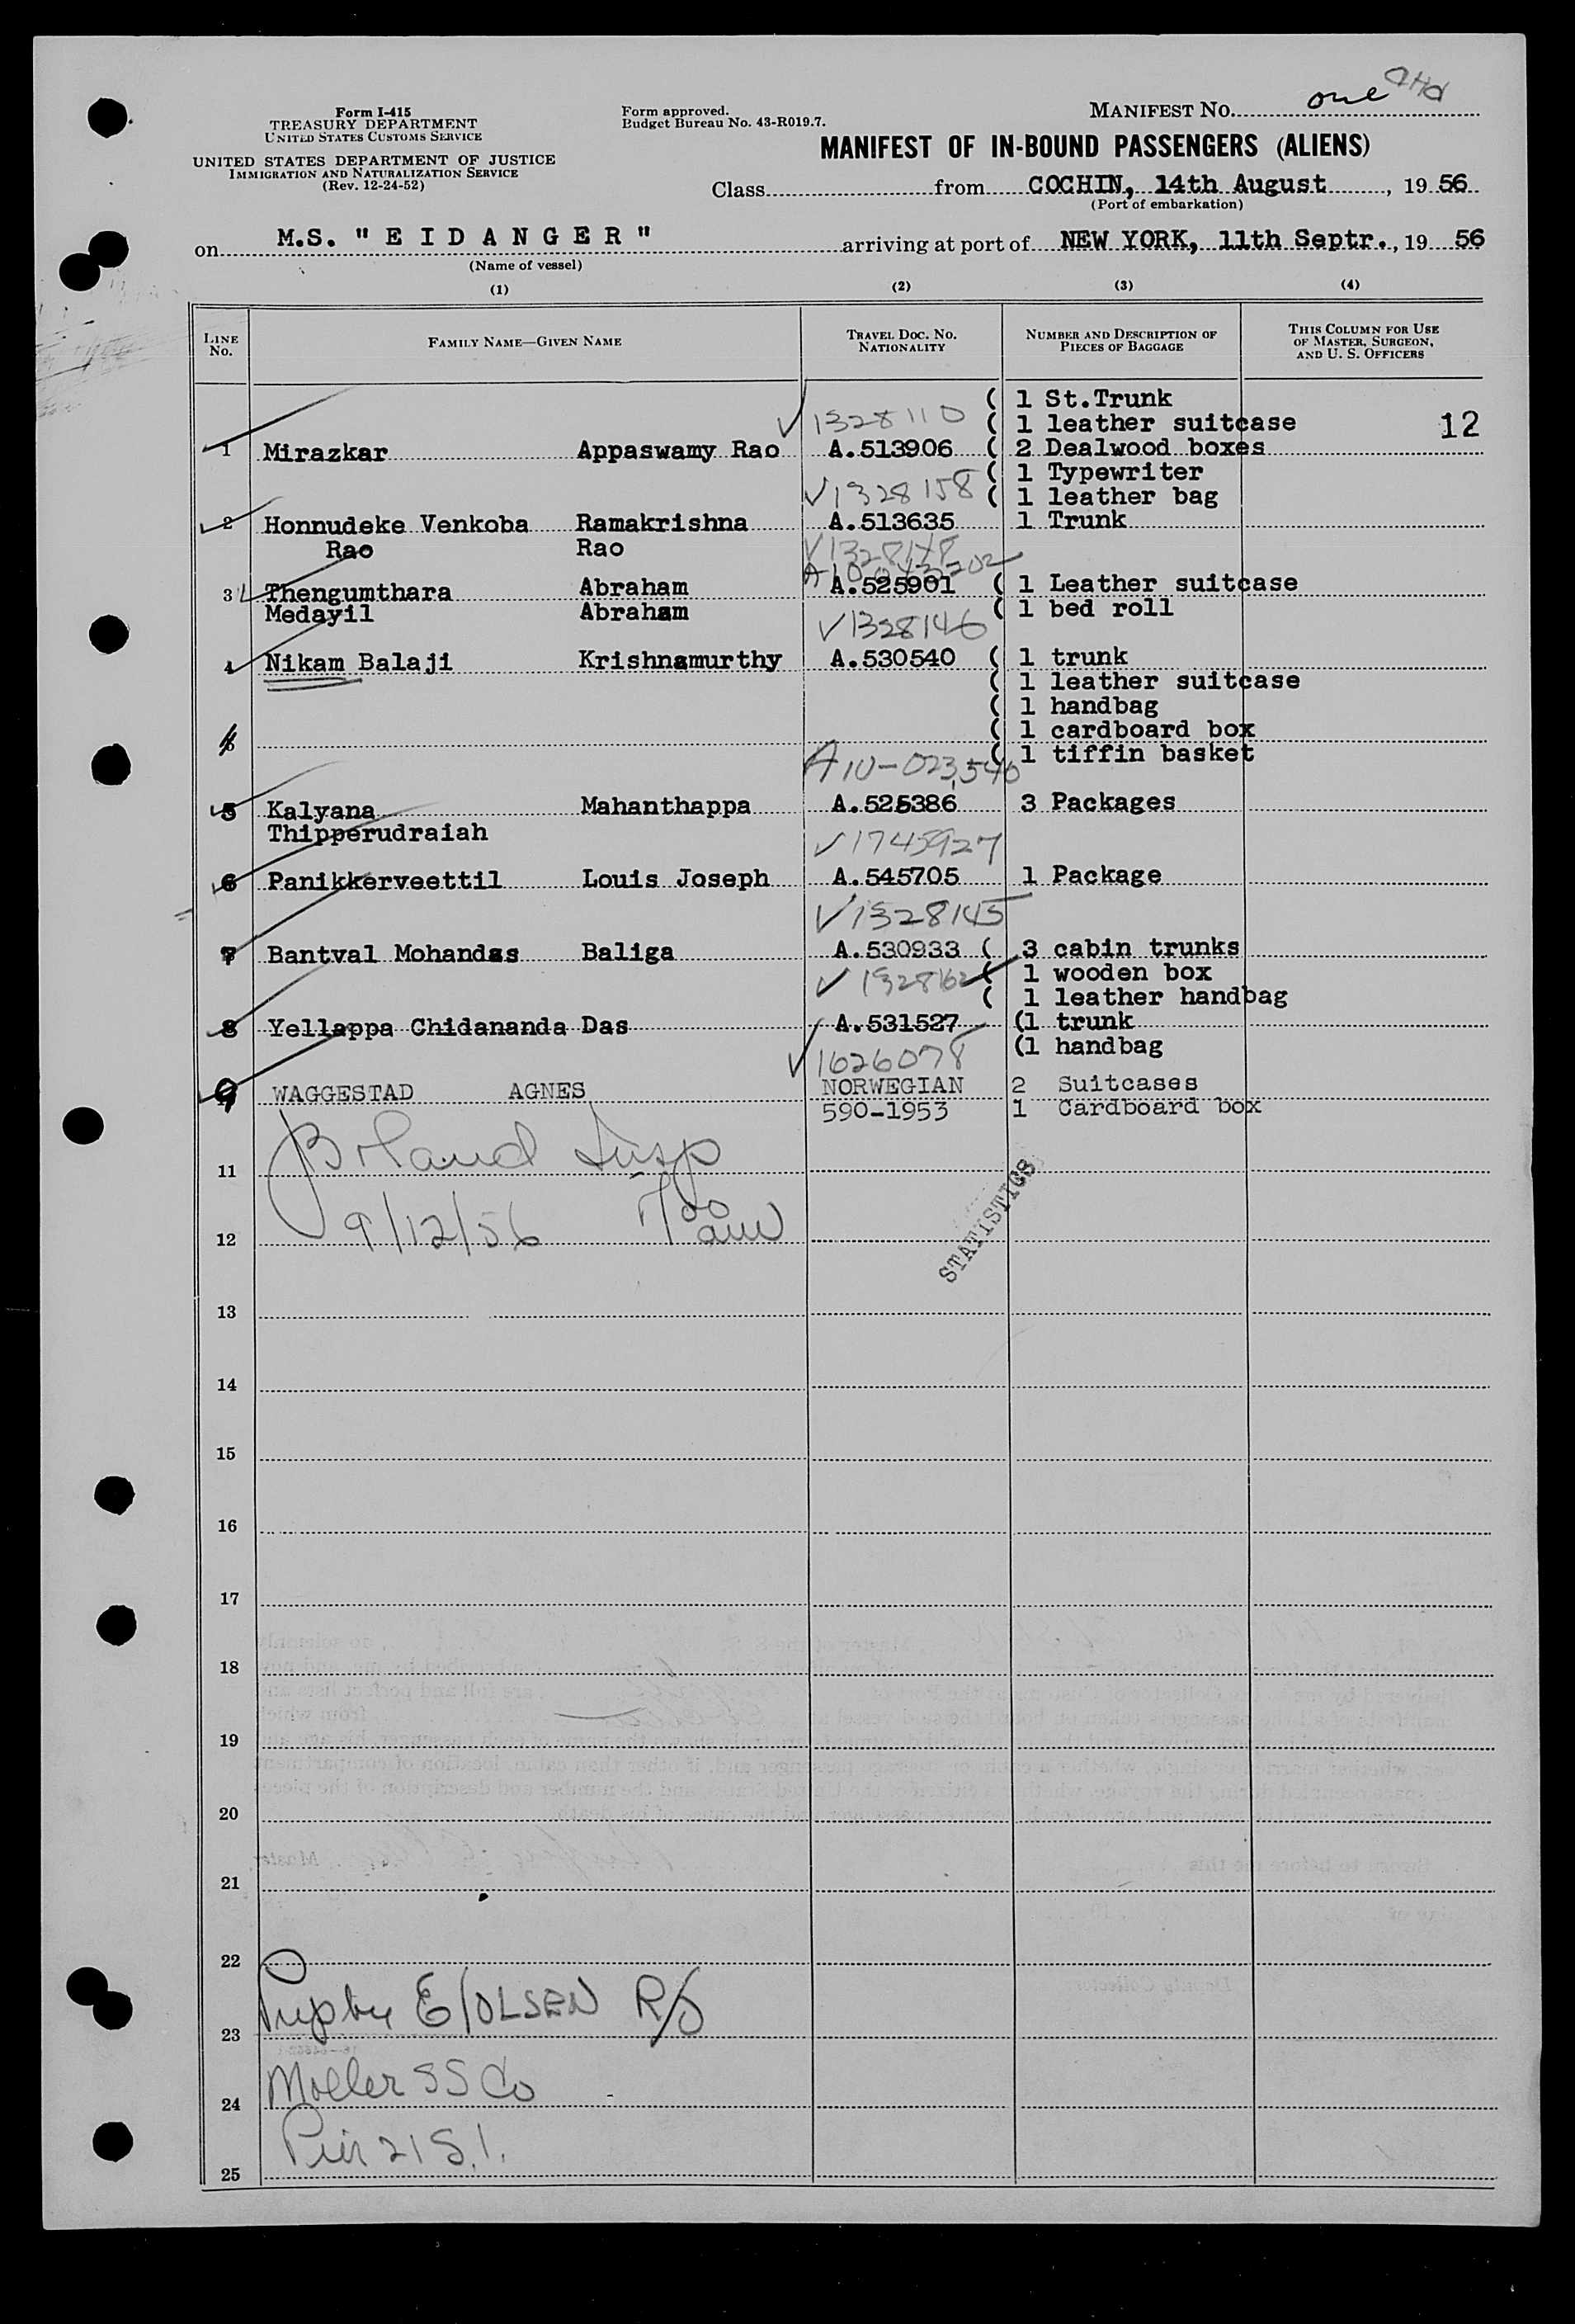 one
Form I-415
TREASURY DEPARTMENT
UNITED STATES CUSTOMS SERVICE
UNITED STATES DEPARTMENT OF JUSTICE
IMMIGRATION AND NATURALIZATION SERVICE
(Rev. 12-24-52)
Form approved.
Budget Bureau No. 43-R019.7.
MANIFEST NO.
MANIFEST OF IN-BOUND PASSENGERS (ALIENS)
Class from COCHIN, 14th August, 19 56
(Port of embarkation)
on M.S. " E I D A N G E R " arriving at port of NEW YORK, 11th Septr., 19 56
(Name of vessel)
(1) (2) (3) (4)
LINE No. FAMILY NAME—GIVEN NAME TRAVEL DOC. NO. NATIONALITY NUMBER AND DESCRIPTION OF PIECES OF BAGGAGE THIS COLUMN FOR USE OF MASTER, SURGEON, AND U. S. OFFICERS
( 1 St.Trunk
1328110 ( 1 leather suitcase 12
1 Mirazkar Appaswamy Rao A.513906 ( 2 Dealwood boxes
( 1 Typewriter
V1328158 ( 1 leather bag
2 Honnudeke Venkoba Ramakrishna A.513635 1 Trunk
Rao Rao
3 Thengumthara Abraham A.525901 ( 1 Leather suitcase
Medayil Abraham ( 1 bed roll
V1328146
4 Nikam Balaji Krishnamurthy A.530540 ( 1 trunk
( 1 leather suitcase
( 1 handbag
( 1 cardboard box
( 1 tiffin basket
A10-023,540
5 Kalyana Mahanthappa A.525386 3 Packages
Thipperudraiah
V1745927
6 Panikkerveettil Louis Joseph A.545705 1 Package
V1328145
7 Bantval Mohandas Baliga A.530933 ( 3 cabin trunks
V 1328162 ( 1 wooden box
( 1 leather handbag
8 Yellappa Chidananda Das A.531527 (1 trunk
(1 handbag
V1626078
9 WAGGESTAD AGNES NORWEGIAN 2 Suitcases
590-1953 1 Cardboard box
Boland Insp
11
9/12/56
12
STATISTICS
13
14
15
16
17
18
19
20
21
22
E/OLSEN R/S
23
Moller SS Co
24
Pier 21 S.I.
25